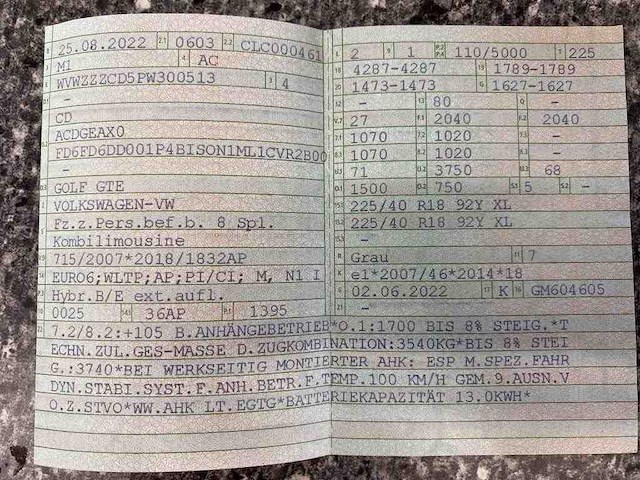 25.08.2022 0603 CLC090461
M1 AC
WVWZZZCD5PW300513 4
–
CD
ACDGEAX0
FD6FD6DD001P4BISON1ML1CVR2B00
–
GOLF GTE
VOLKSWAGEN-VW
Fz.z.Pers.bef.b. 8 Spl.
Kombilimousine
715/2007*2018/1832AP
EURO6;WLTP;AP;PI/CI; M, N1 I
Hybr.B/E ext.aufl.
0025 36AP 1395
2 1 110/5000 225
4287-4287 1789-1789
1473-1473 1627-1627
– 80 –
27 2040 2040
1070 1020 –
1070 1020 –
71 3750 68
1500 750 5 –
225/40 R18 92Y XL
225/40 R18 92Y XL
–
Grau 7
e1*2007/46*2014*18
02.06.2022 K GM604605
–
7.2/8.2:+105 B.ANHÄNGEBETRIEB*O.1:1700 BIS 8% STEIG.*T
ECHN.ZUL.GES-MASSE D.ZUGKOMBINATION:3540KG*BIS 8% STEI
G.:3740*BEI WERKSEITIG MONTIERTER AHK: ESP M.SPEZ.FAHR
DYN.STABI.SYST.F.ANH.BETR.F.TEMP.100 KM/H GEM.9.AUSN.V
O.Z.STVO*WW.AHK LT.EGTG*BATTERIEKAPAZITÄT 13.0KWH*